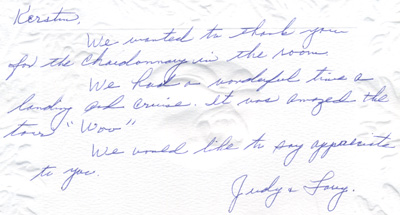 Kerstin,
We wanted to thank you
for the Chardonnay in the room.
We had a wonderful time a
landing and cruise. It was amazed the
tour "Wow"
We would like to say appreciate
to you.
Judy &